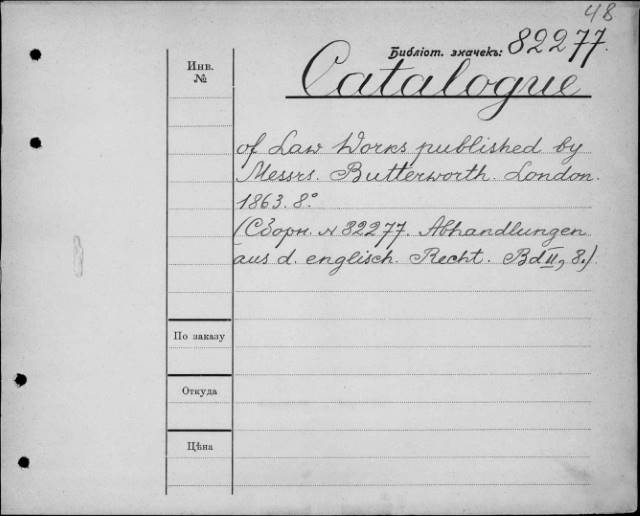 48
Библіот. значекъ: 82277.
Инв. №
Catalogue
of Law Works published by
Messrs. Butterworth. London.
1863. 8°
(Сборн. № 82277. Abhandlungen
aus d. englisch. Recht. Bd II, 8.).
По заказу
Откуда
Цѣна